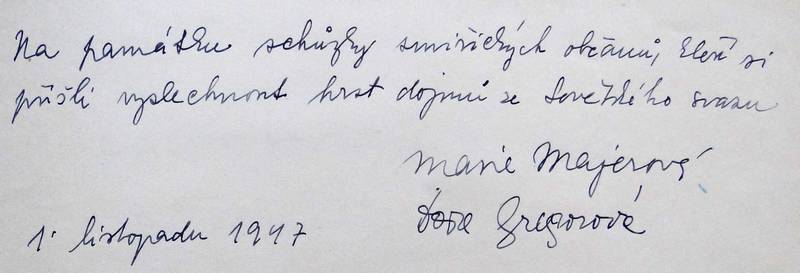 Na památku schůzky smiřických občanů, kteří si
přišli vyslechnout hrst dojmů ze Sovětského svazu
Marie Majerová
Gregorová
1. listopadu 1947